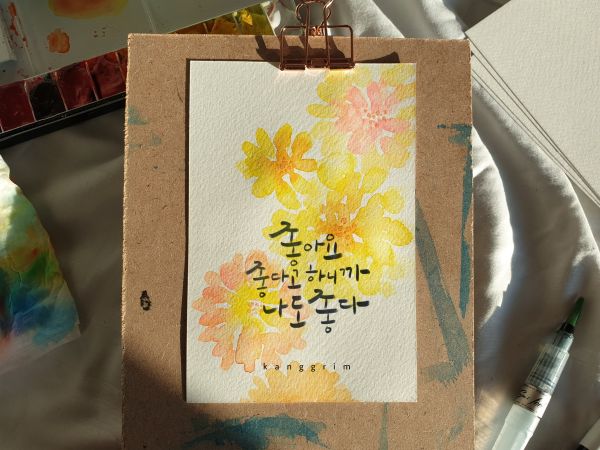 좋아요
좋다고 하니까
나도 좋다
kanggrim